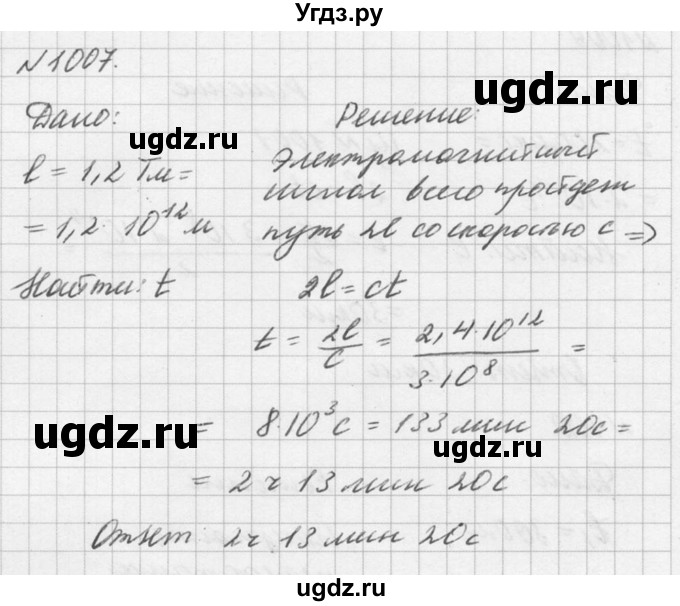 Угдз.ру
N1007.
ugdz.ru
Дано:
Решение:
ugdz.ru
l = 1,2 Тм =
= 1,2 · 10^12 м
Электромагнитный
сигнал всего пройдет
путь 2l со скоростью c ⇒
Найти: t
2l = ct
t = 2l/c = 2,4·10^12/3·10^8 =
ugdz.ru
ugdz.ru
= 8·10^3 с = 133 мин 20с =
= 2 ч 13 мин 20с
Ответ 2ч 13 мин 20с
ugdz.ru